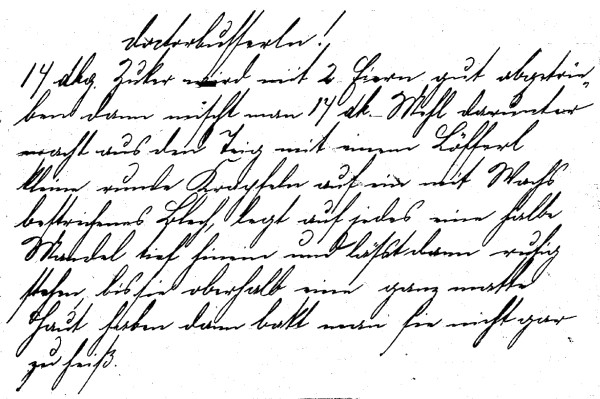 Doctorbusserln!
14 dkg. Zuker wird mit 2 Eiern gut abgetrie-
ben dann mischt man 14 dk. Mehl darunter
macht aus dem Teig mit einem Löfferl
kleine runde Krapfeln auf ein mit Wachs
bestrichenes Blech, legt auf jedes eine halbe
Mandel tief hinein und läßt dann ruhig
stehen, bis sie oberhalb eine ganz matte
Haut haben dann bakt man sie nicht gar
zu heiß.